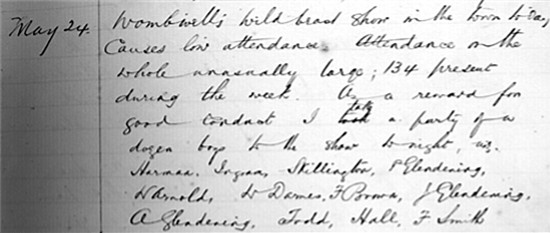 May 24. Wombwell's wild beast show in the town to day
Causes low attendance. Attendance on the
whole unusually large; 134 present
during the week. As a reward for
good conduct I take a party of a
dozen boys to the show to night, viz.
Harman, Ingram, Skillington, P Glendening,
W Arnold, W Dames, F Brown, J Glendening,
A Glendening, Todd, Hall, F Smith